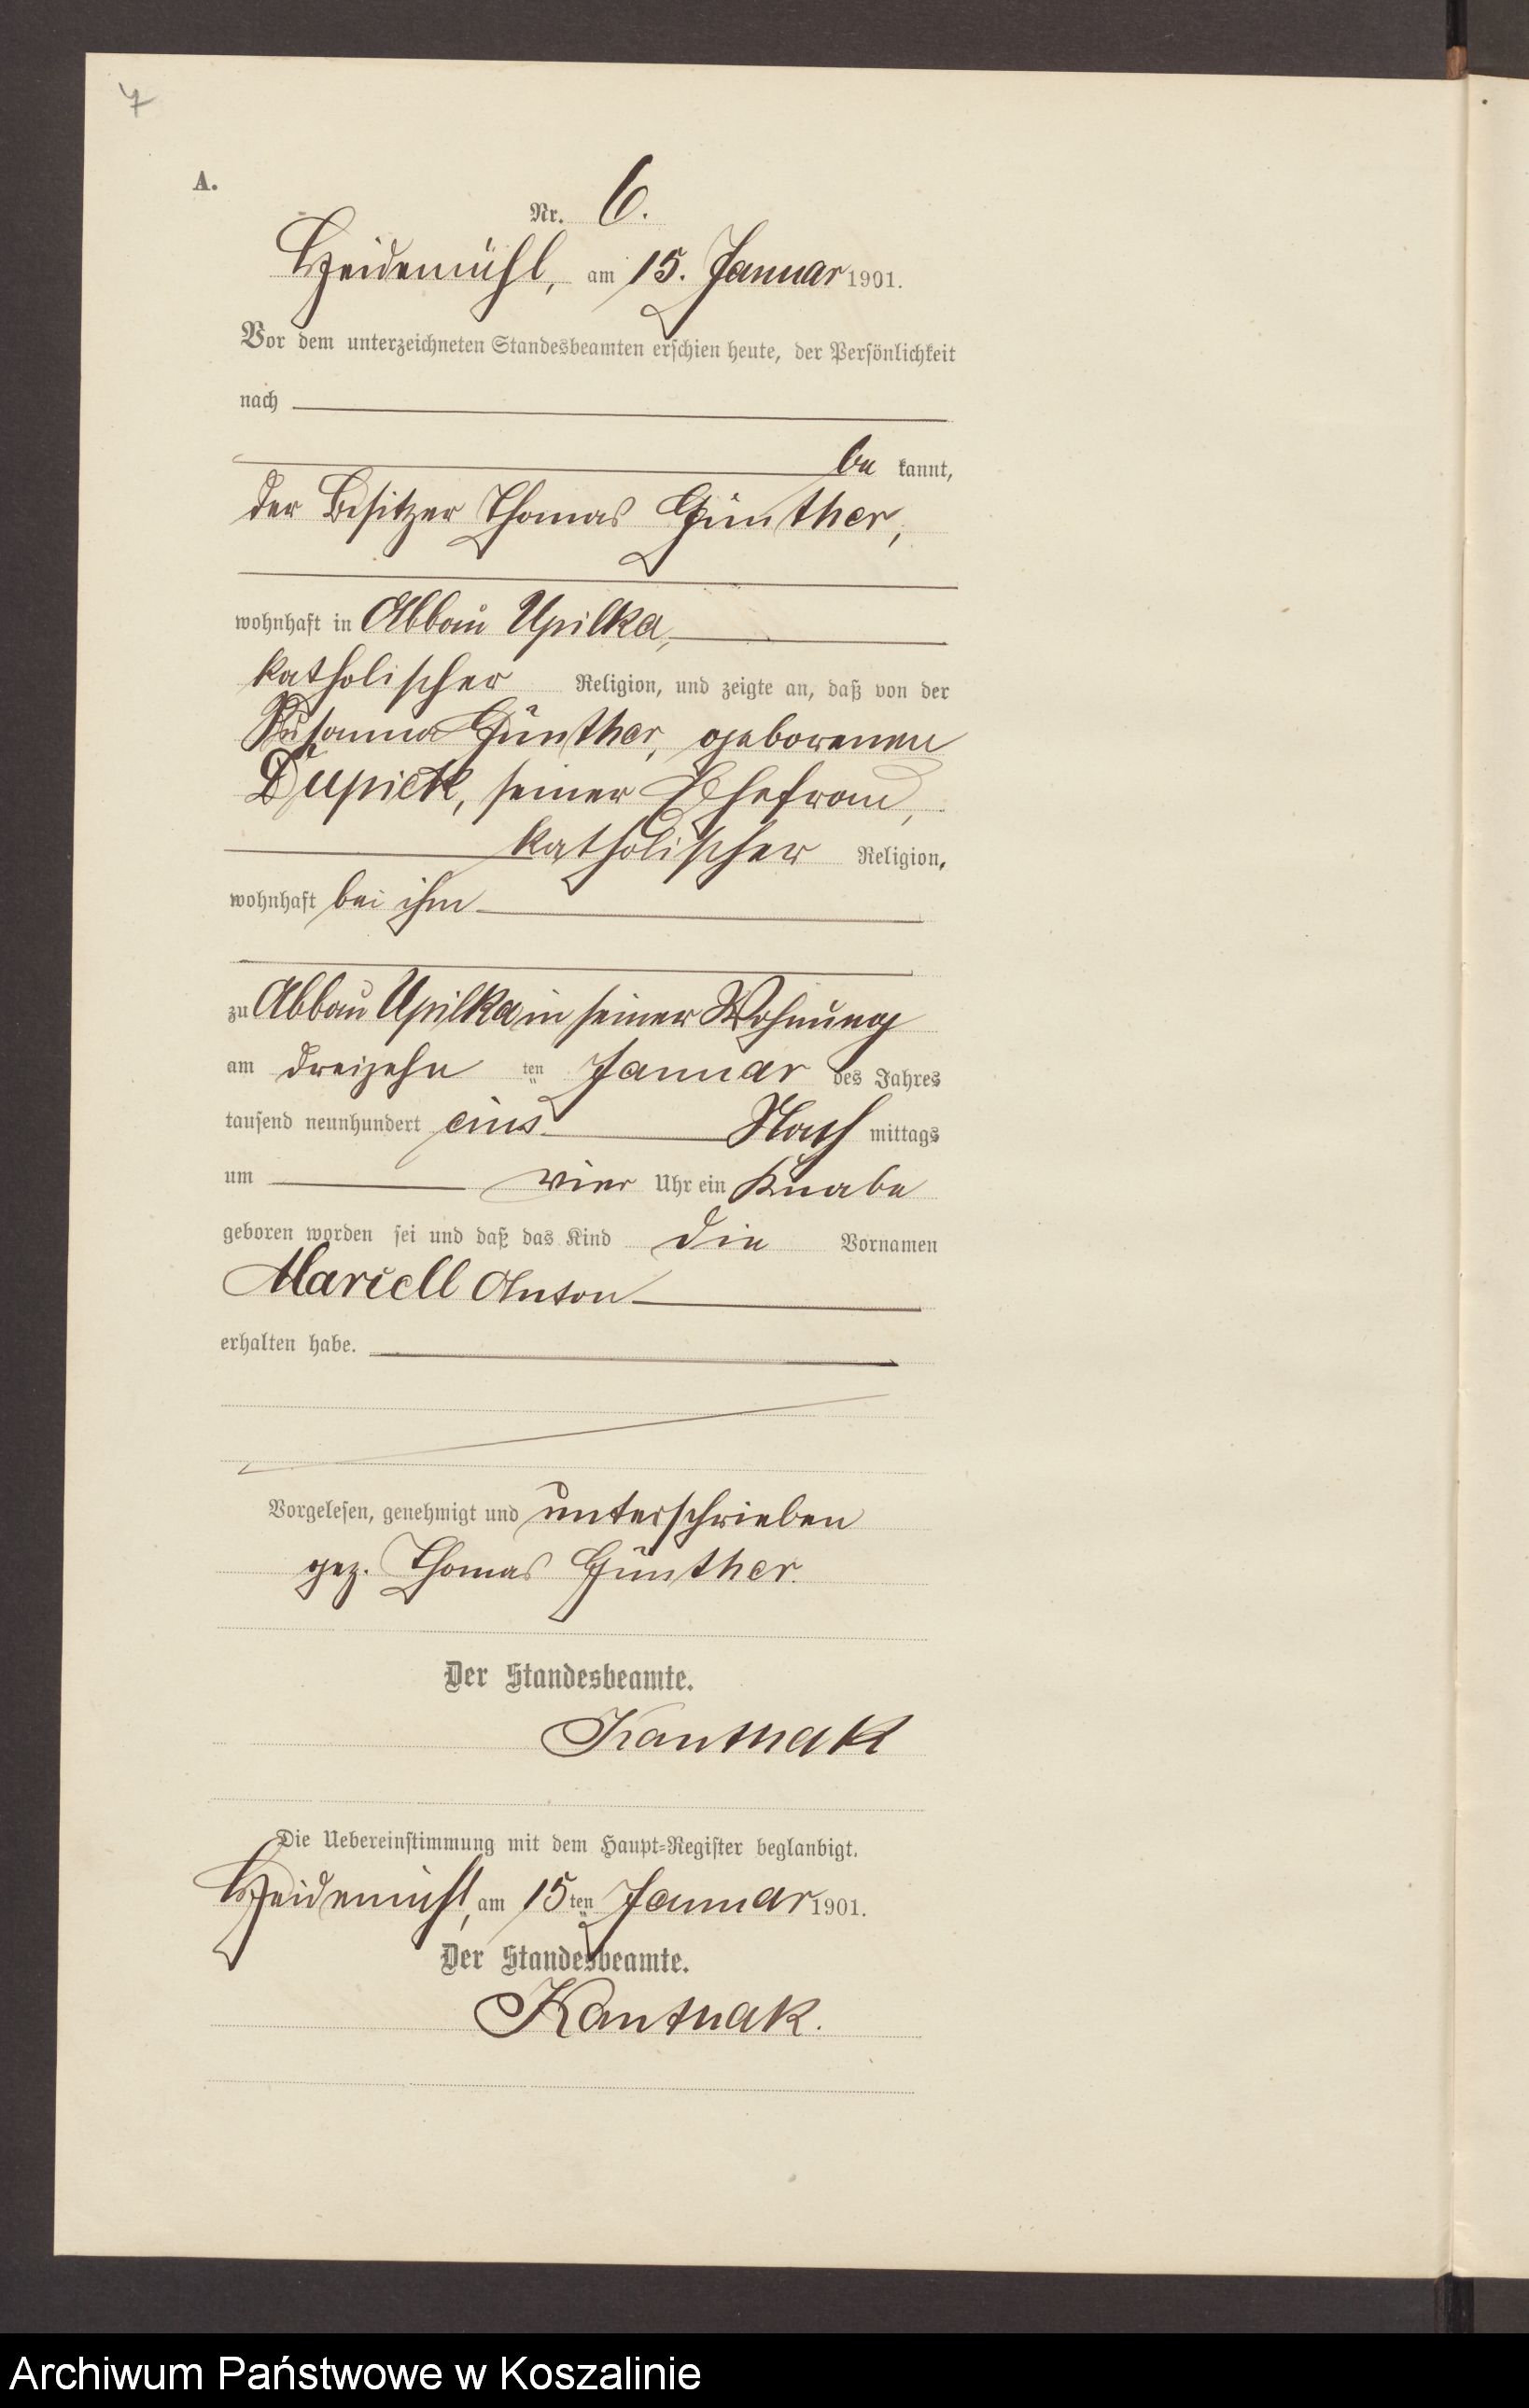 7
A.
Nr. 6.
Heidemühl, am 15. Januar 1901.
Vor dem unterzeichneten Standesbeamten erschien heute, der Persönlichkeit
nach
be kannt,
der Besitzer Thomas Günther,
wohnhaft in Abbau Upilka,
katholischer Religion, und zeigte an, daß von der
Susanna Günther, geborenen
Dupick, seiner Ehefrau,
katholischer Religion,
wohnhaft bei ihm
zu Abbau Upilka in seiner Wohnung
am dreizehn ten Januar des Jahres
tausend neunhundert eins Nach mittags
um vier Uhr ein Knabe
geboren worden sei und daß das Kind die Vornamen
Marcell Anton
erhalten habe.
Vorgelesen, genehmigt und unterschrieben
gez. Thomas Günther.
Der Standesbeamte.
Kantnak
Die Uebereinstimmung mit dem Haupt-Register beglaubigt.
Heidemühl, am 15ten Januar 1901.
Der Standesbeamte.
Kantnak.
Archiwum Państwowe w Koszalinie